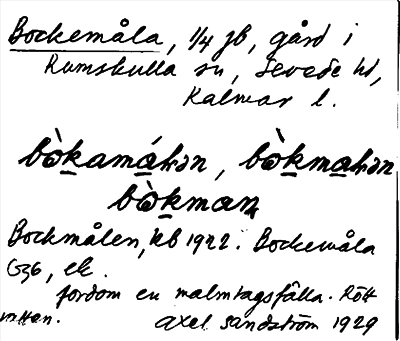 Bockemåla, 1/4 jb, gård i
Rumskulla sn, Sevede hd,
Kalmar l.
bò̱kamá̱hən, bò̱kma̱hən
bò̱kman
Bockmålen, kb 1922. Bockemåla
G36, ek.
fordom en malmtagsfälla. Rött
vatten. Axel Sandström 1929